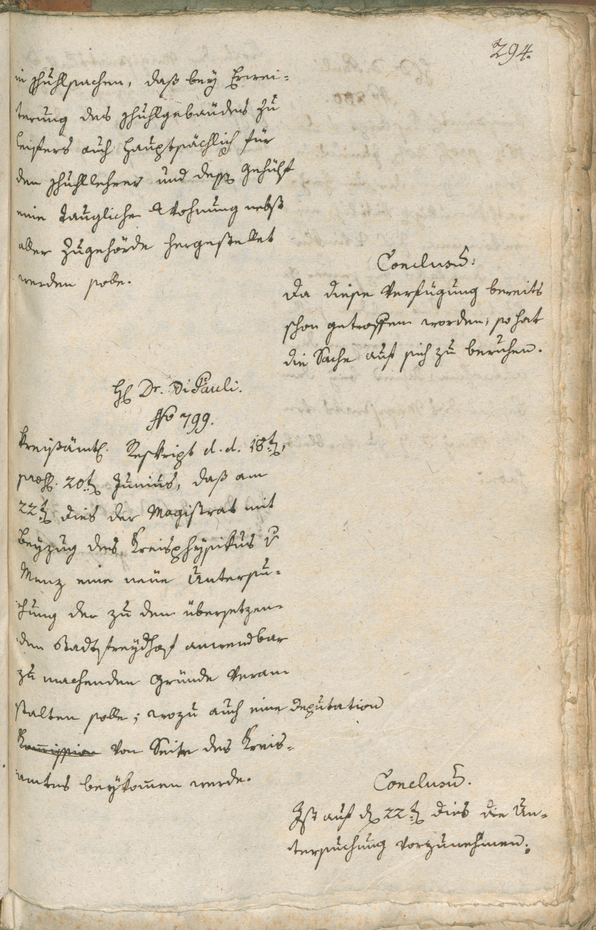 294.
in Schuhlsachen, daß bey Erwei-
terung des Schuhlgebäudes zu
auch hauptsächlich für
den Schuhllehrer und deß Gehülf
eine taugliche Wohnung nebst
aller Zugehörde hergestellet
werden solle.
Conclusũ:
Da diese Verfügung bereits
schon getroffen worden; so hat
die Sache auf sich zu beruhen.
H Dr. Di Pauli.
No 799.
Kreisämtl. Reskript d. d. 18t,
20t Junius, daß am
22t dies der Magistrat mit
Beyzug des Kreisphysikus v
Menz eine neue Untersu-
chung der zu dem übersetzen-
den Stadtfreydhof anwendbar
zu machenden Gründe veran
stalten solle; wozu auch eine Deputation
Kommission von Seite des Kreis-
amtes beykommen werde.
Conclusũ.
Ist auf d 22t dies die Un-
tersuchung vorzunehmen.